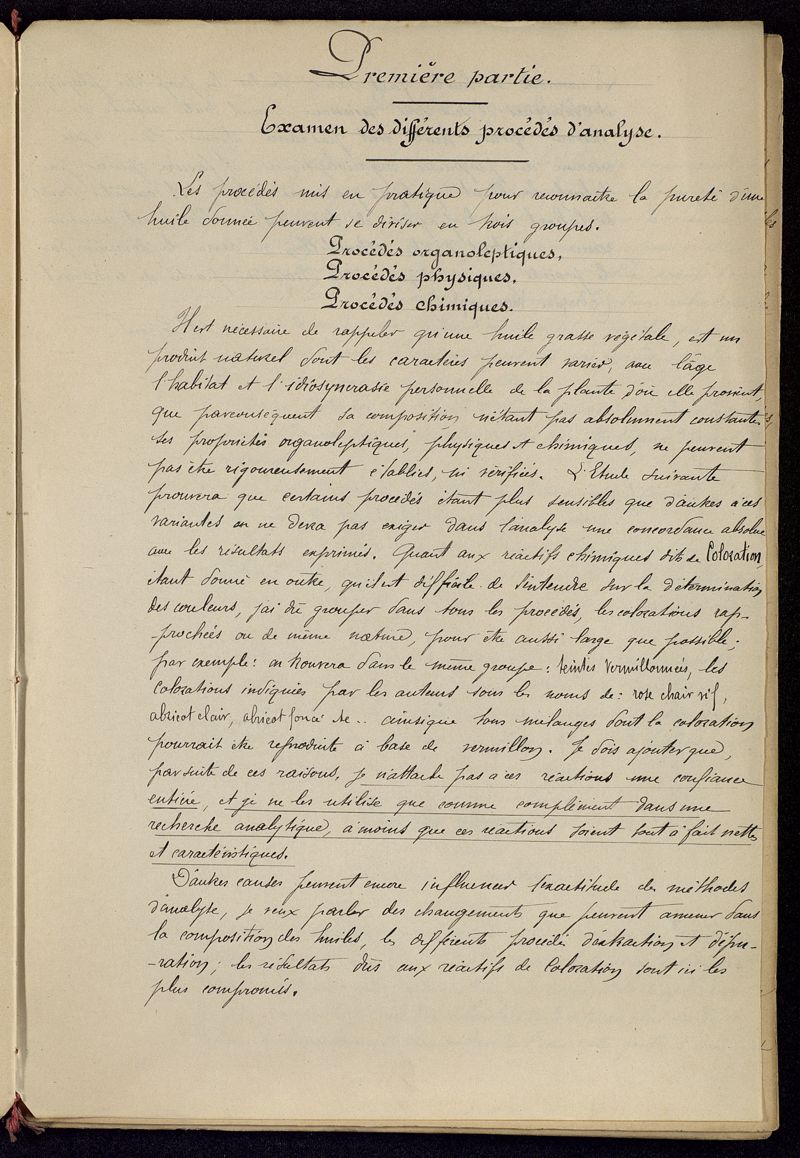 Première partie.
Examen des différents procédés d'analyse.
Les procédés mis en pratique pour reconnaître la pureté d'une
huile donnée peuvent se diviser en trois groupes.
Procédés organoleptiques,
Procédés physiques.
Procédés chimiques.
Il est nécessaire de rappeler qu'une huile grasse végétale, est un
produit naturel dont les caractères peuvent varier, avec l'âge
l'habitat et l'idiosyncrasie personnelle de la plante d'où elle provient,
que par conséquent sa composition n'étant pas absolument constante
ses propriétés organoleptiques, physiques et chimiques, ne peuvent
pas être rigoureusement établies, ni vérifiées. L'Etude suivante
prouvera que certains procédés étant plus sensibles que d'autres à ces
variantes on ne devra pas exiger dans l'analyse une concordance absolue
avec les résultats exprimés. Quant aux réactifs chimiques dits de Coloration,
étant donné en outre, qu'il est difficile de s'entendre sur la détermination
des couleurs, j'ai dû grouper dans tous les procédés, les colorations rap-
-prochées ou de même nature, pour être aussi large que possible;
par exemple: on trouvera dans le même groupe: teintes vermillonnées, les
colorations indiquées par les auteurs sous les noms de: rose chair vif,
abricot clair, abricot foncé etc.. ainsi que tous mélanges dont la coloration
pourrait être reproduite à base de vermillon. Je dois ajouter que,
par suite de ces raisons, je n'attache pas à ces réactions une confiance
entière, et je ne les utilise que comme complément dans une
recherche analytique, à moins que ces réactions soient tout à fait nettes
et caractéristiques.
D'autres causes peuvent encore influencer l'exactitude des méthodes
d'analyse, je veux parler des changements que peuvent amener dans
la composition des huiles, les différents procédés d'extraction et d'épu-
-ration; les résultats dûs aux réactifs de Coloration sont ici les
plus compromis.